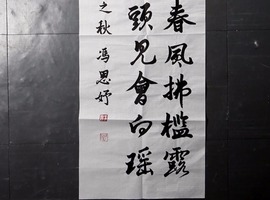 春風拂檻露
頭見會向瑤
之秋 馮思妤